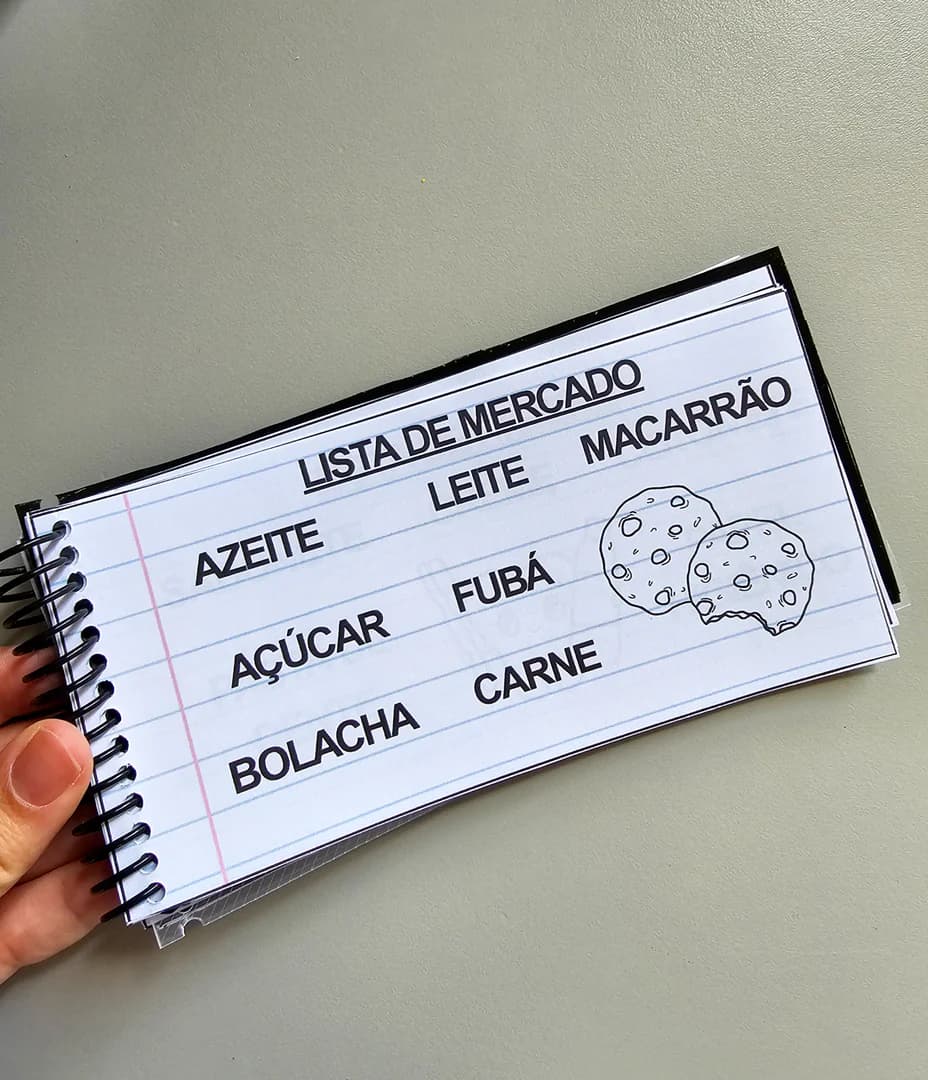 LISTA DE MERCADO
AZEITE LEITE MACARRÃO
AÇÚCAR FUBÁ
BOLACHA CARNE